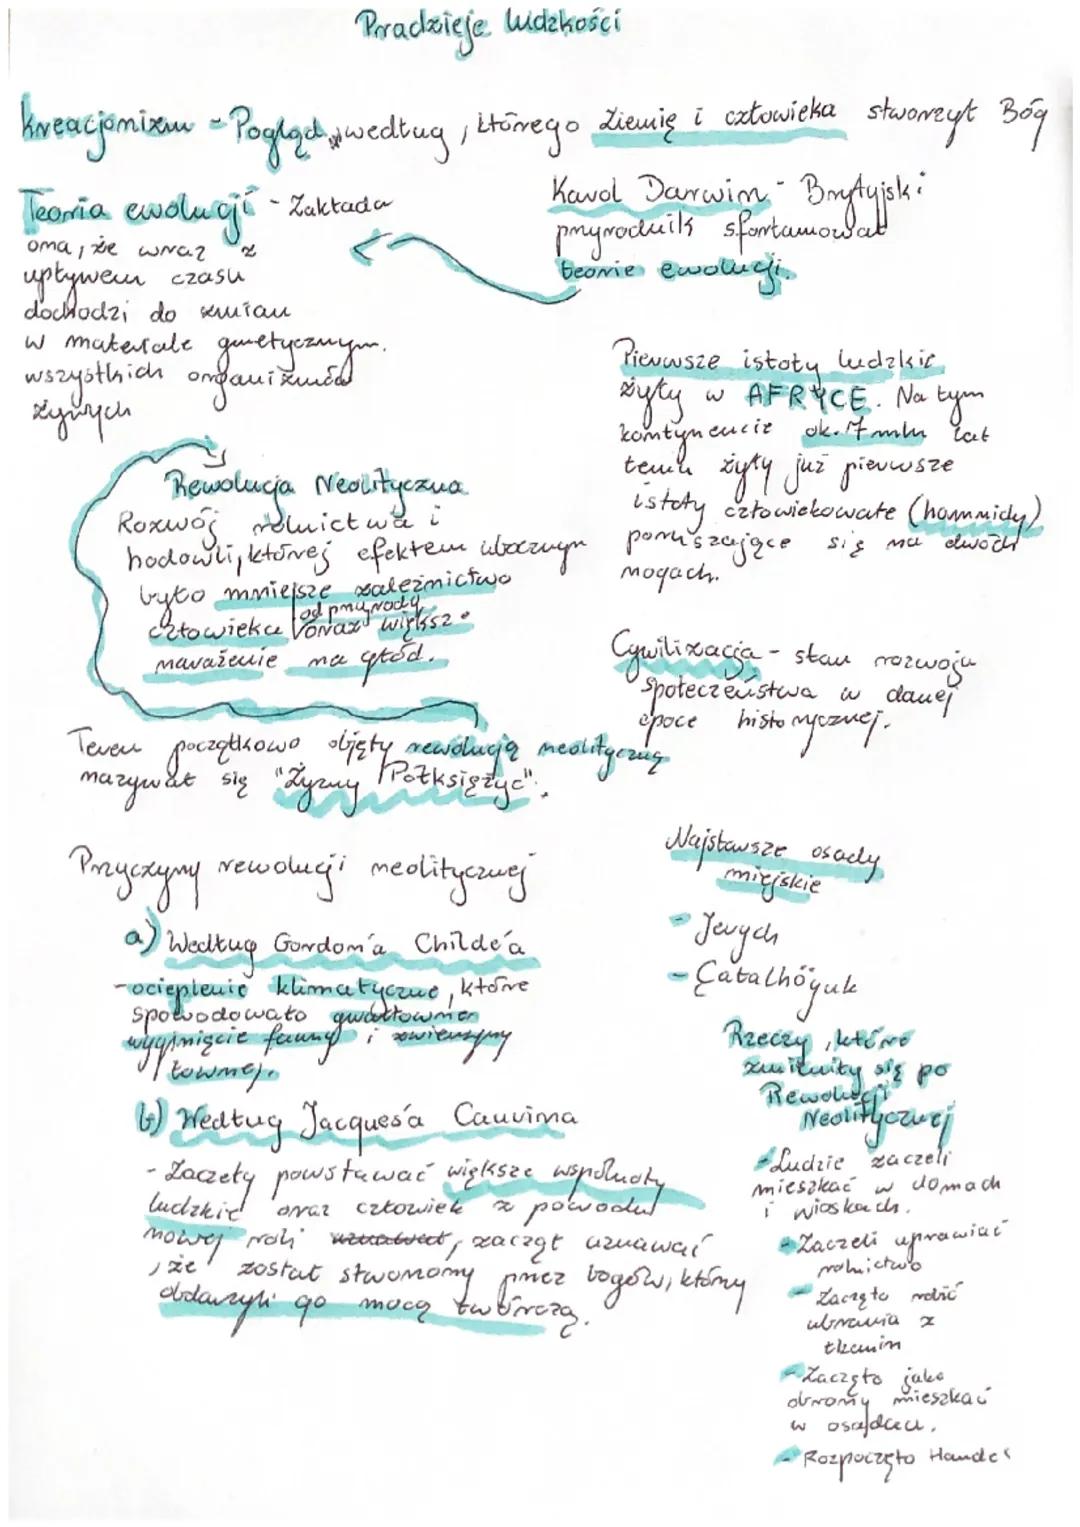 Pradzieje ludzkości
kreacjonizm - Pogląd, według, którego Ziemię i człowieka stworzył Bóg
Teoria ewolucji - Zakłada
ona, że wraz z
upływem czasu
dochodzi do zmian
w materiale genetycznym.
wszystkich organizmów
żywych
Karol Darwin - Brytyjski
przyrodnik sformułował
teorie ewolucji.
Pierwsze istoty ludzkie
żyły w AFRYCE. Na tym
kontynencie ok. 7 mln lat
temu żyły już pierwsze
istoty człowiekowate (hommidy)
poruszające się na dwóch
nogach.
Rewolucja Neolityczna
Rozwój rolnictwa i
hodowli, której efektem ubocznym
było mniejsze zależnictwo
od przyrody
człowieka oraz większe
narażenie na głód.
Cywilizacja - stan rozwoju
społeczeństwa w danej
epoce historycznej.
Teren początkowo objęty rewolucją neolityczną
nazywał się "Żyzny Półksiężyc".
Przyczyny rewolucji neolitycznej
a) Według Gordon'a Childe'a
- ocieplenie klimatyczne, które
spowodowało gwałtowne
wyginięcie fauny i zwierzyny
łownej.
b) Według Jacques'a Cauvina
- Zaczęły powstawać większe wspólnoty
ludzkie oraz człowiek z powodu
nowej roli uznawał, zaczął uznawać
, że został stworzony przez bogów, którzy
obdarzyli go mocą twórczą.
Najstarsze osady
miejskie
- Jerych
- Çatalhöyuk
Rzeczy, które
zmieniły się po
Rewolucji
Neolitycznej
- Ludzie zaczeli
mieszkać w domach
i wioskach.
- Zaczeli uprawiać
rolnictwo
- Zaczęto robić
ubrania z
tkanin
- Zaczęto jako
obrony mieszkać
w osadach.
- Rozpoczęto Handel